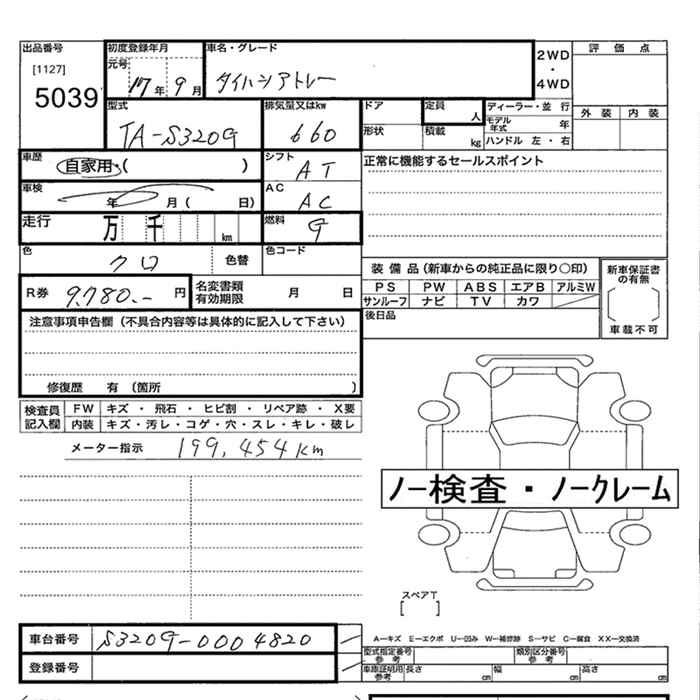 出品番号
[1127]
5039
初度登録年月
元号
17年 9月
車名・グレード
ダイハツアトレー
2WD
・
4WD
評価点
外装 内装
型式
TA-S320G
排気量又はkw
660
ドア
形状
定員
人
積載
kg
ディーラー・並行
モデル年式 年
ハンドル 左・右
車歴
自家用・( )
シフト
AT
正常に機能するセールスポイント
車検
年 月( 日)
AC
AC
走行
万 千 km
燃料
G
色
クロ
色替
色コード
R券 9,780.- 円
名変書類
有効期限 月 日
装備品(新車からの純正品に限り○印)
PS PW ABS エアB アルミW
サンルーフ ナビ TV カワ
新車保証書
の有無
車載不可
後日品
注意事項申告欄(不具合内容等は具体的に記入して下さい)
修復歴 有(箇所 )
検査員
記入欄
FW キズ・飛石・ヒビ割・リペア跡・X要
内装 キズ・汚レ・コゲ・穴・スレ・キレ・破レ
メーター指示 199,454km
ノー検査・ノークレーム
スペアT
[ ]
車台番号 S320G-0004820
登録番号
A−キズ E−エクボ U−凹み W−補修跡 S−サビ C−腐食 XX−交換済
型式指定番号
参考
類別区分番号
参考
車庫証明用
参考
長さ cm 幅 cm 高さ cm